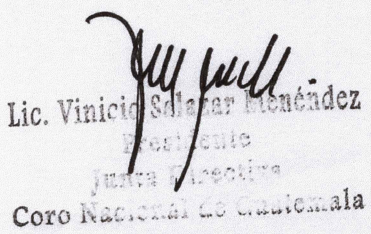 Lic. Vinicio Salazar Menéndez
Presidente
Junta Directiva
Coro Nacional de Guatemala